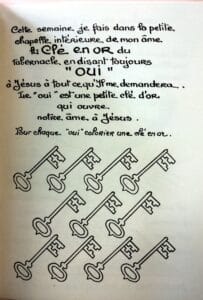 Cette semaine, je fais dans la petite
chapelle intérieure, de mon âme.
la Clé en OR du
Tabernacle, en disant toujours
"OUI"
à Jésus à tout ce qu'Il me demandera...
Ce "oui" est une petite clé d'or
qui ouvre
notre âme à Jésus.
Pour chaque "oui" colorier une clé en or.